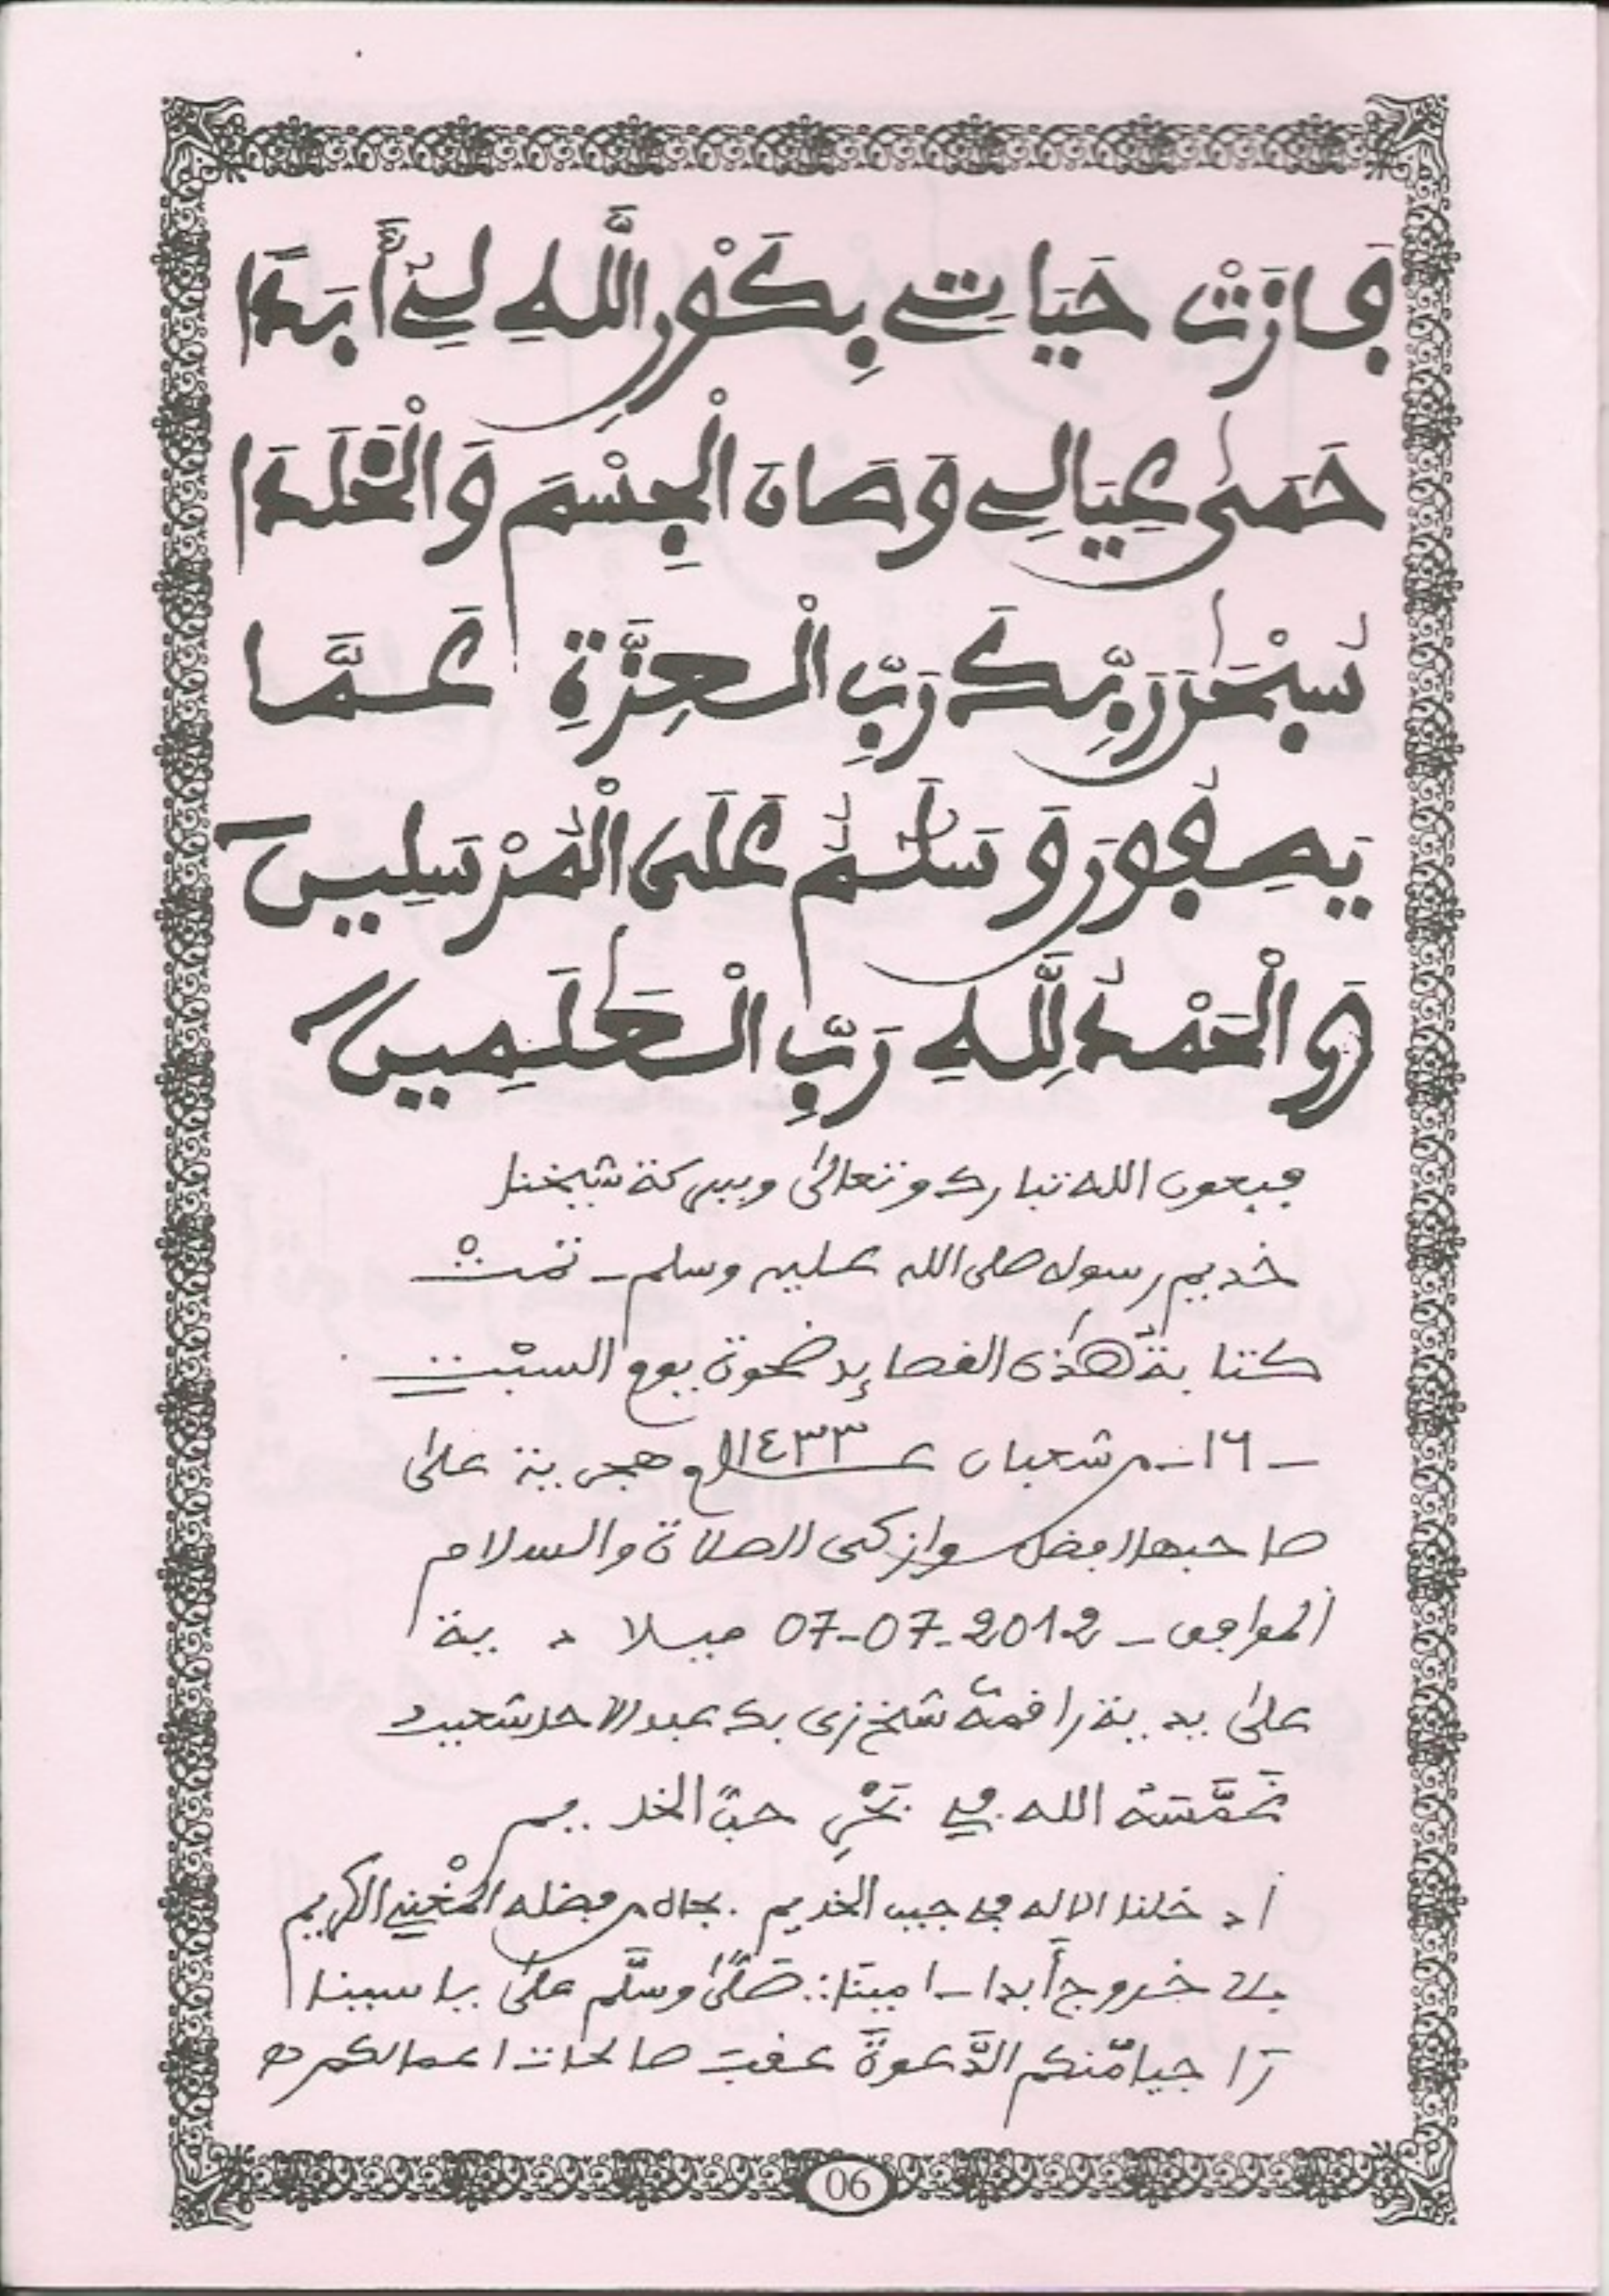 فازت حياتي بكون الله لي أبدا
حمى عيالي وصان الجسم والخلدا
سبحن ربك رب العزة عما
يصفون وسلم على المرسلين
والحمد لله رب العلمين
فبعون الله تبارك وتعالى وببركة شيخنا
خديم رسوله صلى الله عليه وسلم - تمت
كتابة هذه القصايد ضحوة يوم السبت
- ١٦ - من شعبان ع ١٤٣٣ هجرية على
صاحبها افضل وازكى الصلاة والسلام
الموافق - 2012-07-07 ميلادية
على يد راقمه شيخ عبد الاحد
غمسه الله في بحر حب الخديم
أدخلنا الاله في حبيب الخديم . بجاه من فضله المغني الكريم
بلا خروج أبدا - امينا :. صلى وسلم على ياسينا
راجيا منكم الدعوة عقب صالحات اعمالكم
06